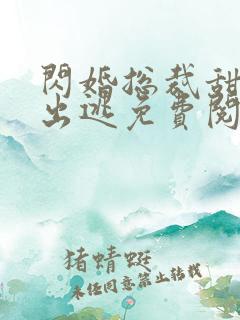 閃婚总裁甜
出逃免費閱
猪蜻蜓
未经同意禁止转载